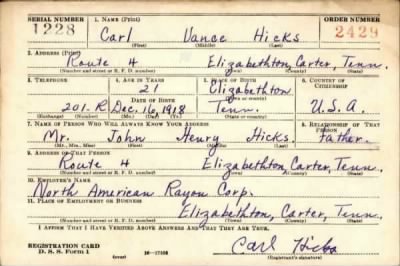 SERIAL NUMBER 1. NAME (Print) ORDER NUMBER
1228 Carl Vance Hicks 2429
(First) (Middle) (Last)
2. ADDRESS (Print)
Route 4 Elizabethton, Carter, Tenn.
(Number and street or R. F. D. number) (Town) (County) (State)
3. TELEPHONE 4. AGE IN YEARS 5. PLACE OF BIRTH 6. COUNTRY OF CITIZENSHIP
21 Elizabethton
DATE OF BIRTH (Town or county)
201-R Dec. 16, 1918 Tenn. U.S.A.
(Exchange) (Number) (Mo.) (Day) (Yr.) (State or country)
7. NAME OF PERSON WHO WILL ALWAYS KNOW YOUR ADDRESS 8. RELATIONSHIP OF THAT PERSON
Mr. John Henry Hicks Father.
(Mr., Mrs., Miss) (First) (Middle) (Last)
9. ADDRESS OF THAT PERSON
Route 4 Elizabethton, Carter, Tenn.
(Number and street or R. F. D. number) (Town) (County) (State)
10. EMPLOYER'S NAME
North American Rayon Corp.
11. PLACE OF EMPLOYMENT OR BUSINESS
Elizabethton, Carter, Tenn.
(Number and street or R. F. D. number) (Town) (County) (State)
I AFFIRM THAT I HAVE VERIFIED ABOVE ANSWERS AND THAT THEY ARE TRUE.
REGISTRATION CARD
D. S. S. Form 1 (over) Carl Hicks
(Registrant's signature)